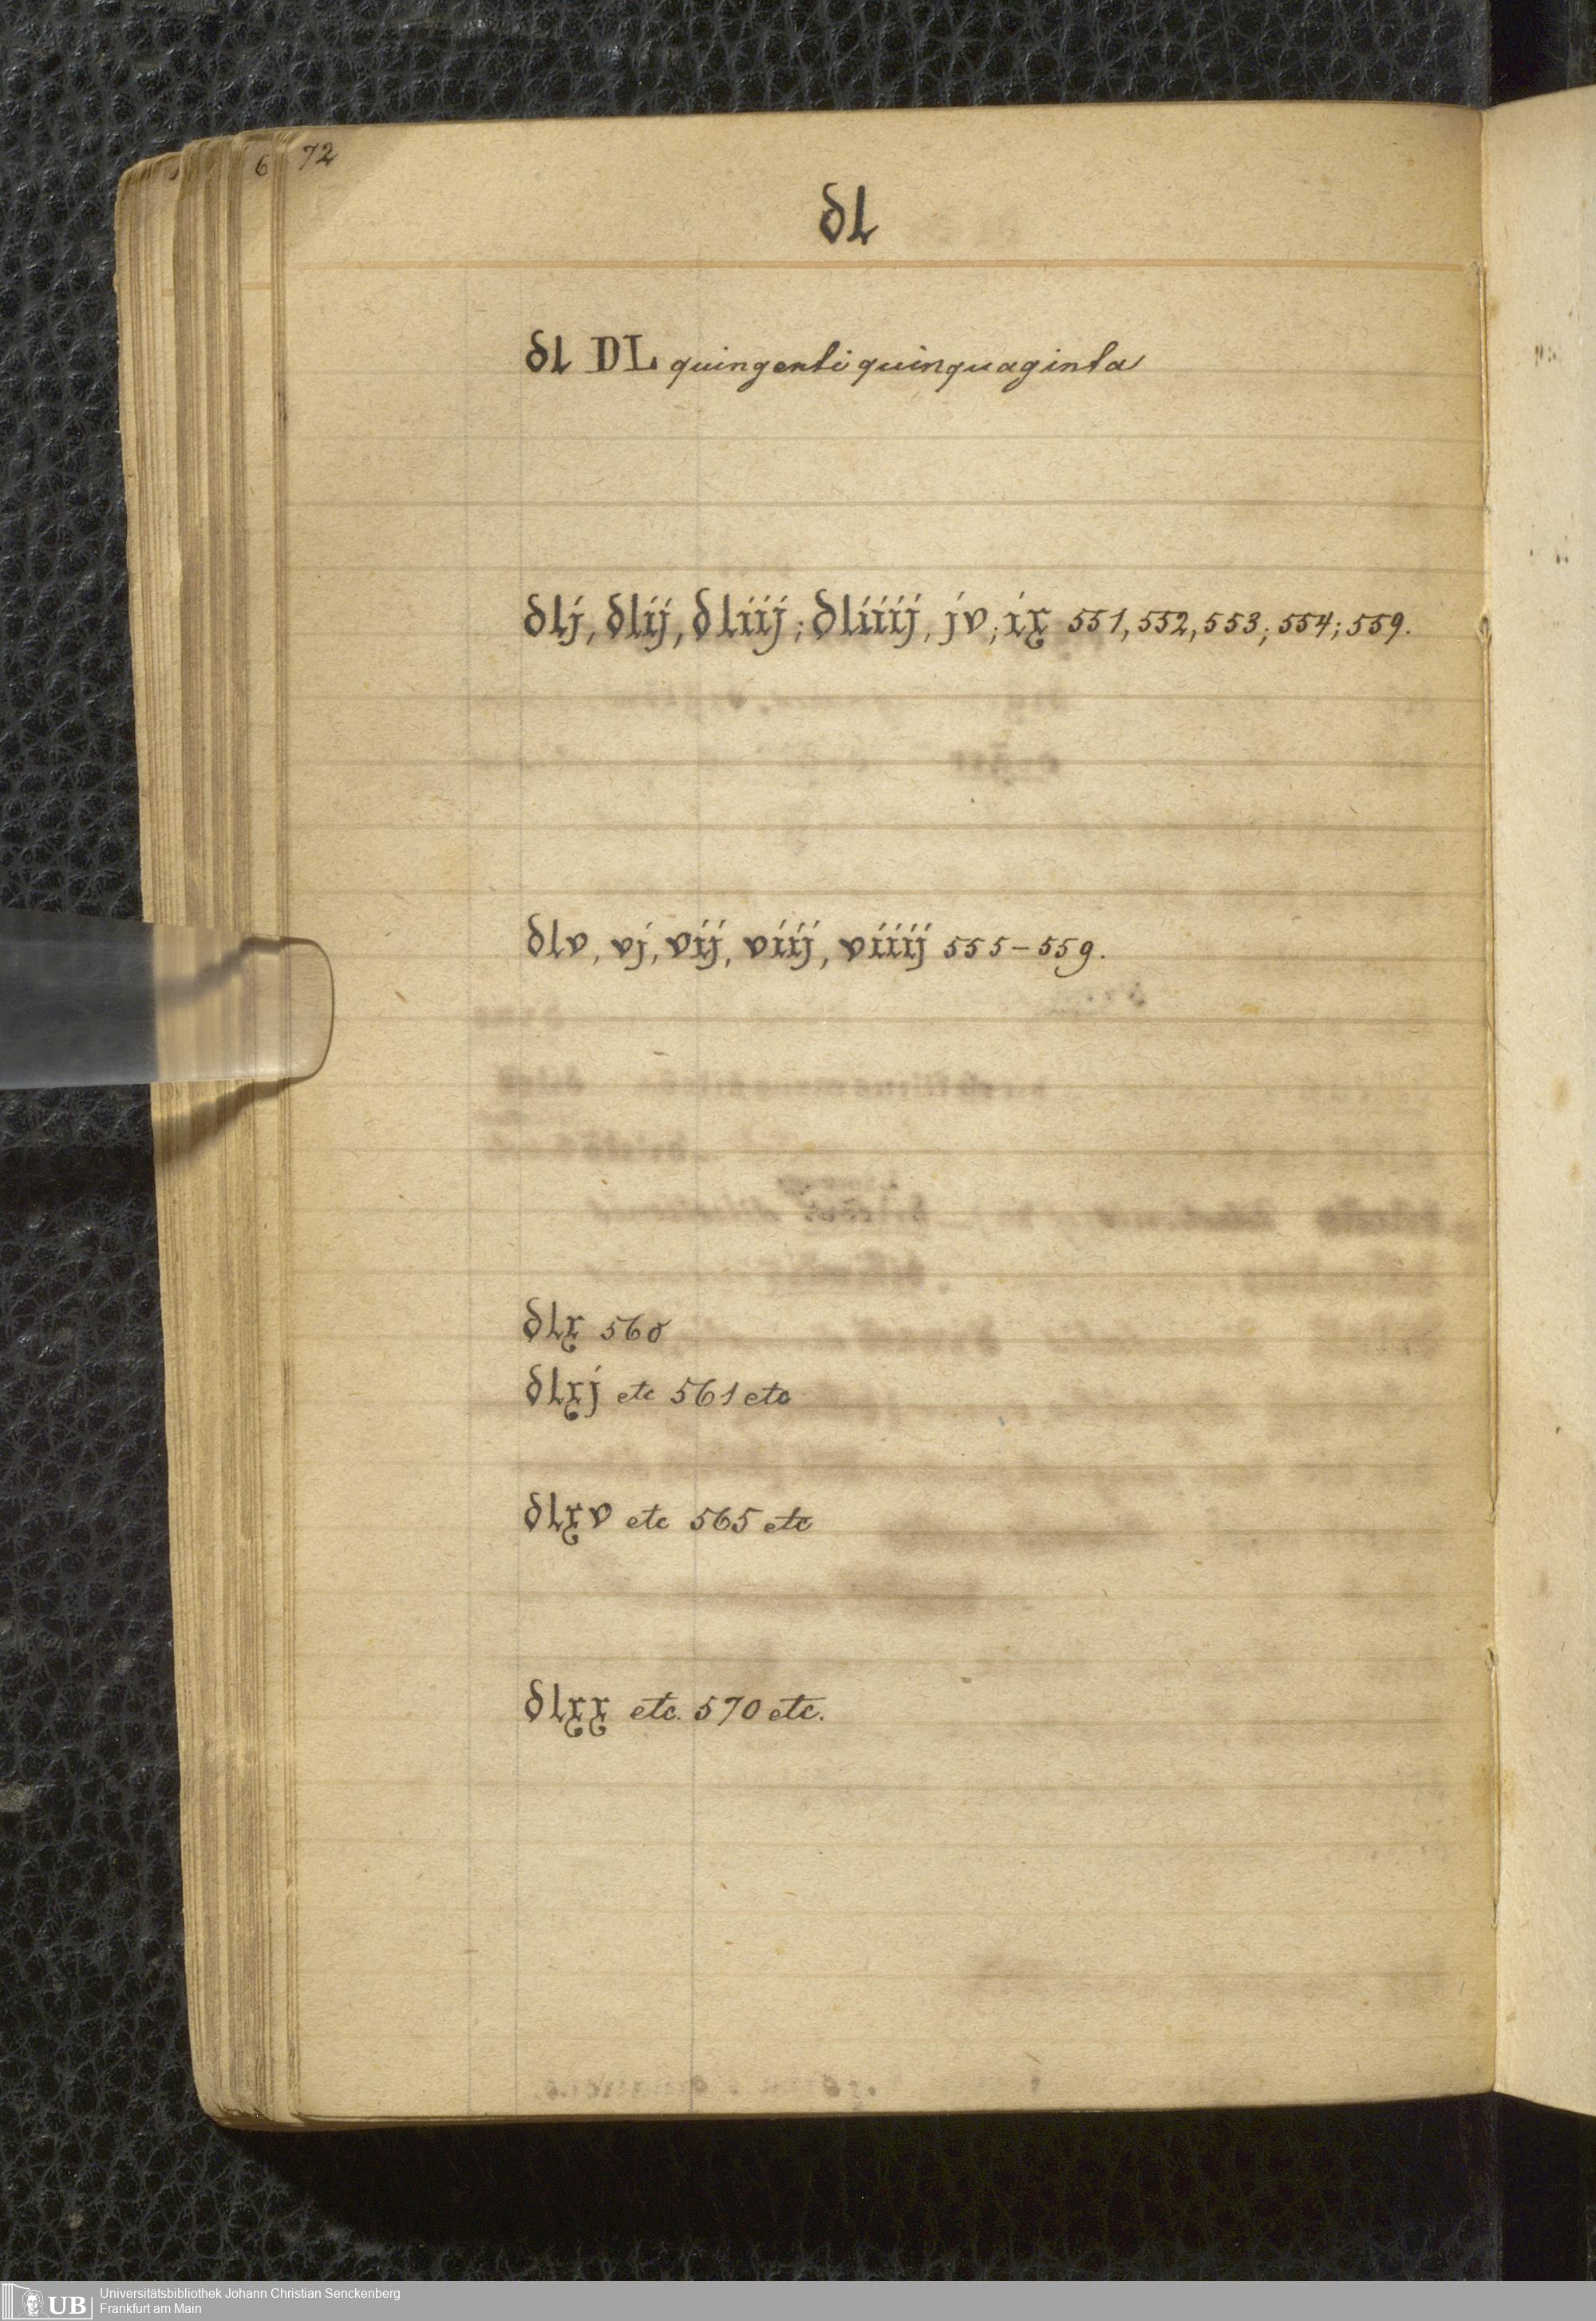 6 72
dl
dl DL quingenti quinquaginta
dlj, dlij, dliij; dliiij, jv; ix 551, 552, 553; 554; 559.
dlv, vj, vij, viij, viiij 555-559.
dlx 560
dlxj etc 561 etc
dlxv etc 565 etc
dlxx etc. 570 etc.
UB
Universitätsbibliothek Johann Christian Senckenberg
Frankfurt am Main